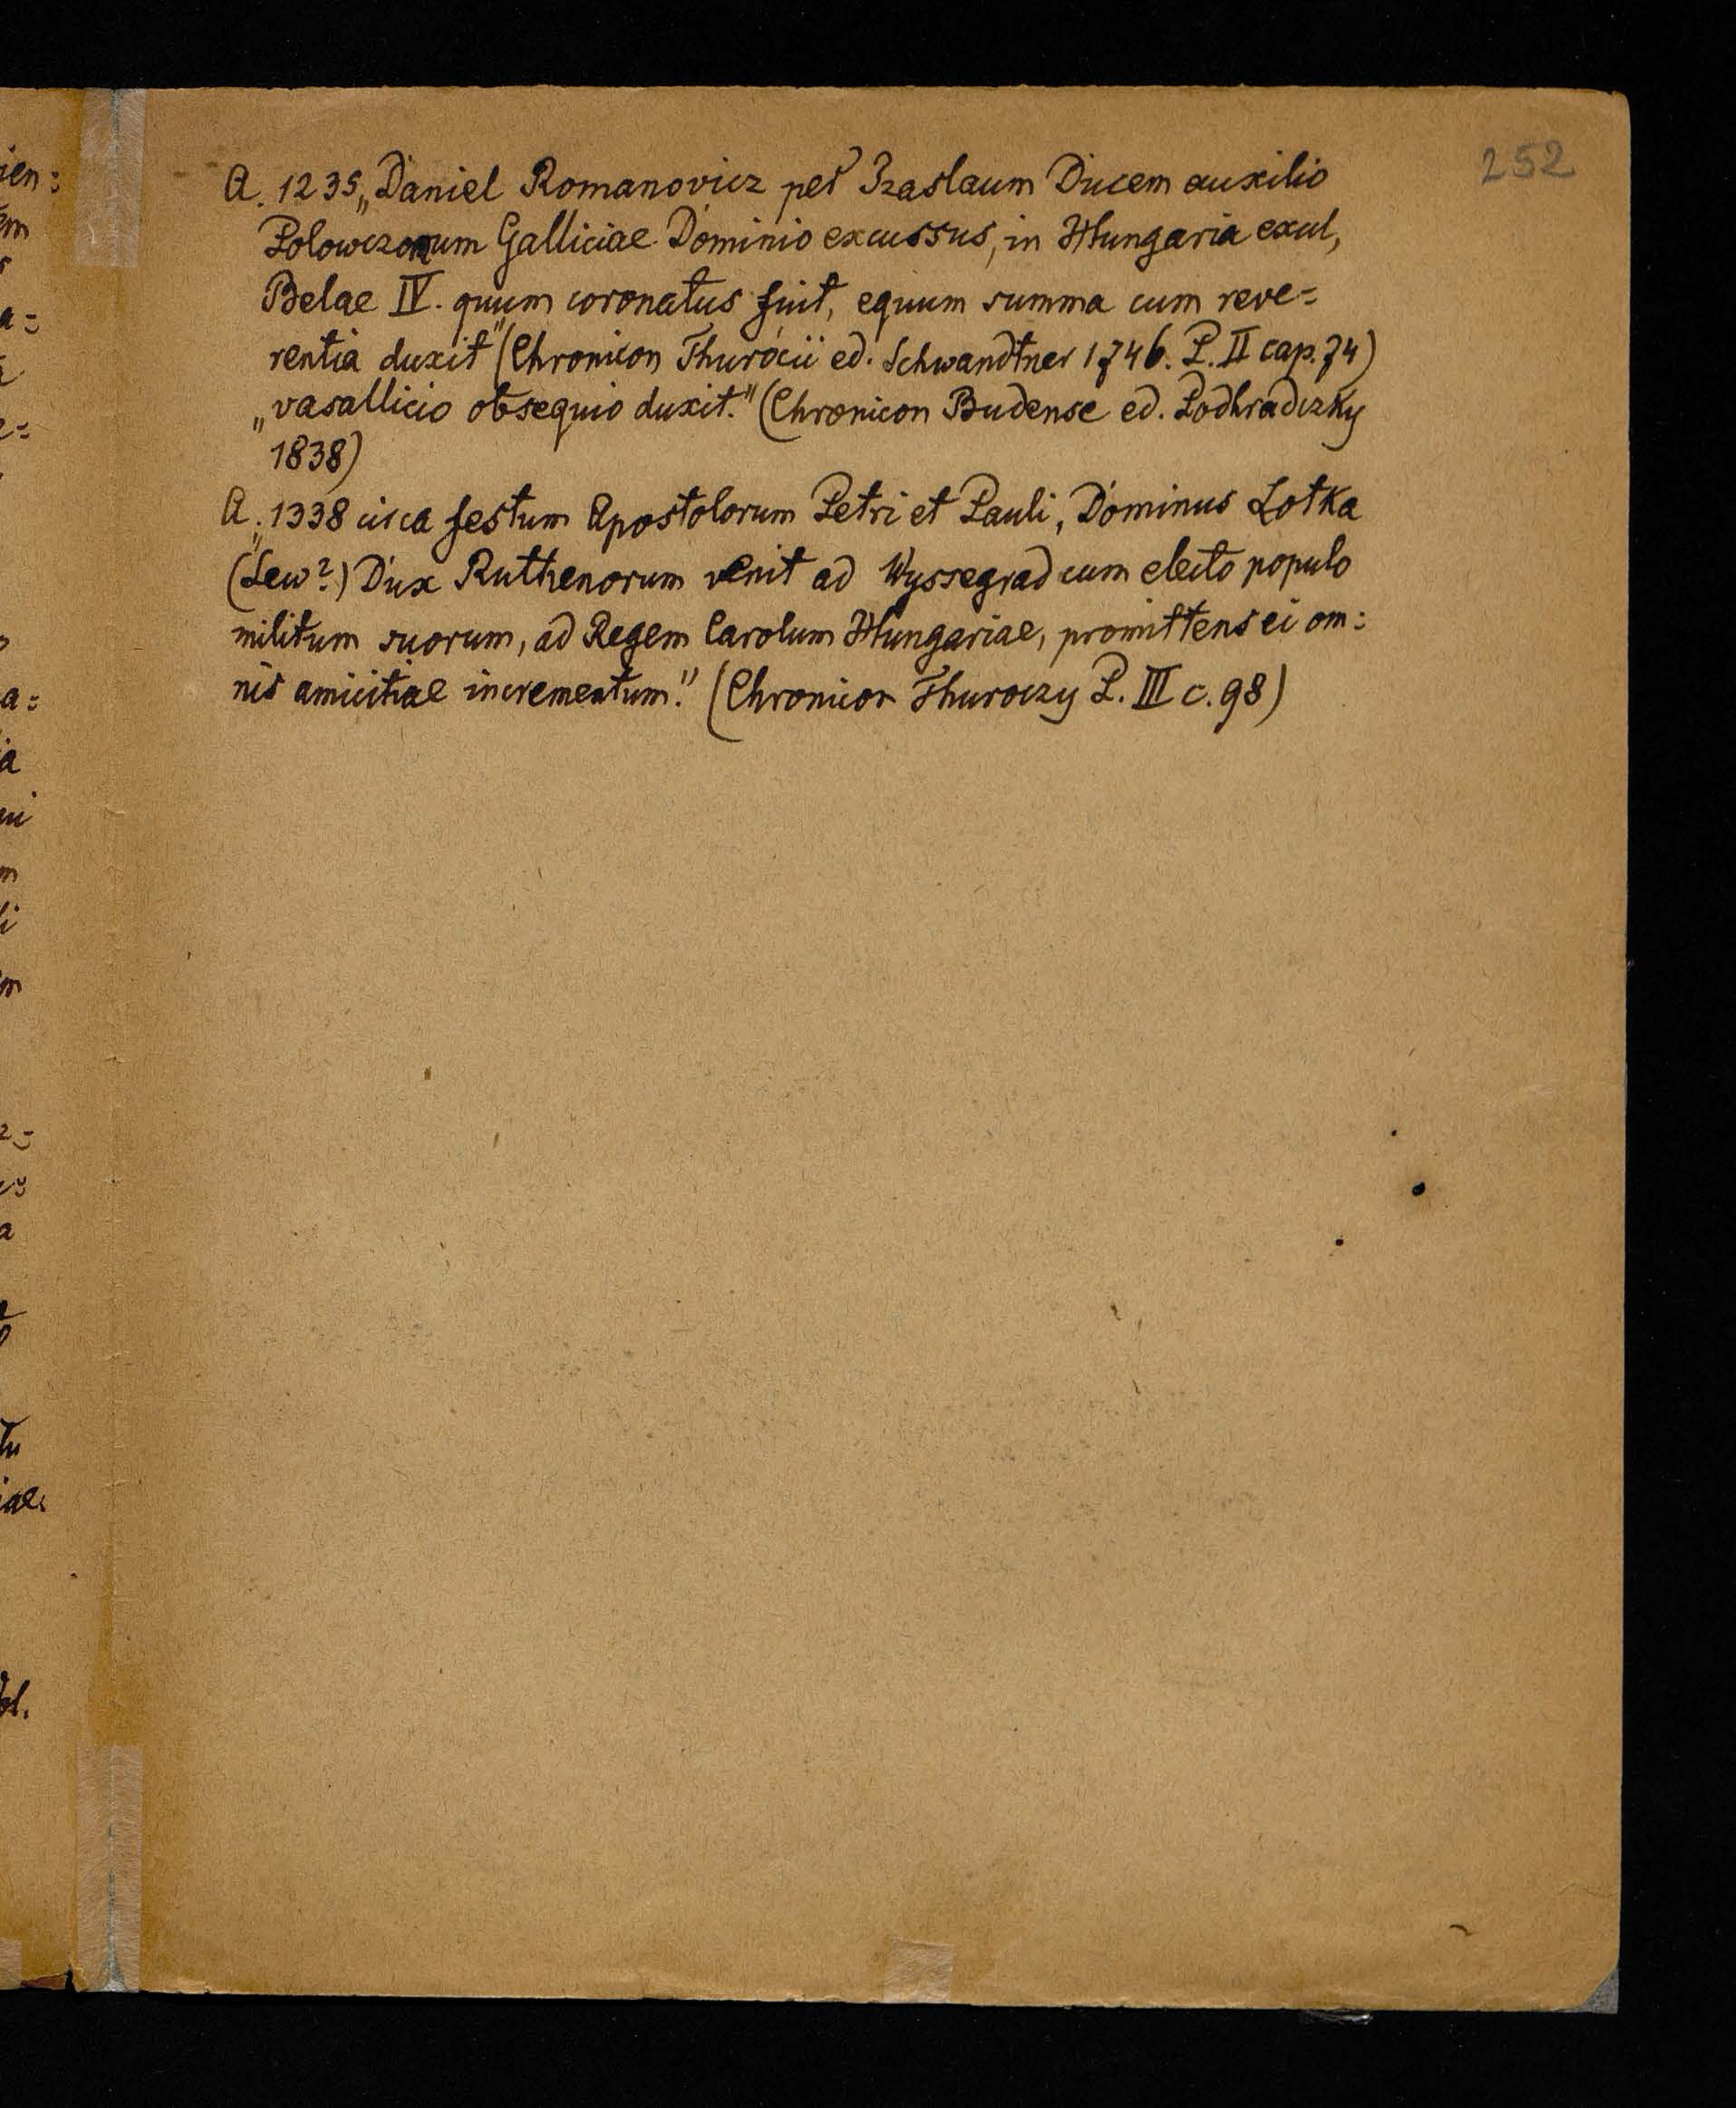 252
A. 1235 „Daniel Romanovicz per Izaslaum Ducem auxilio
Polowczorum Galliciae Dominio excussus, in Hungaria exul,
Belae IV. quum coronatus fuit, equum summa cum reve=
rentia duxit" (Chronicon Thurócii ed. Schwandtner 1746. P. II cap. 74)
„vasallicio obsequio duxit." (Chronicon Budense ed. Podhradczky
1838)
A. „1338 circa festum Apostolorum Petri et Pauli, Dominus Lotka
(Lew?) Dux Ruthenorum venit ad Wyssegrad cum electo populo
militum suorum, ad Regem Carolum Hungariae, promittens ei om=
nis amicitiae incrementum." (Chronicon Thuroczy P. III c. 98)